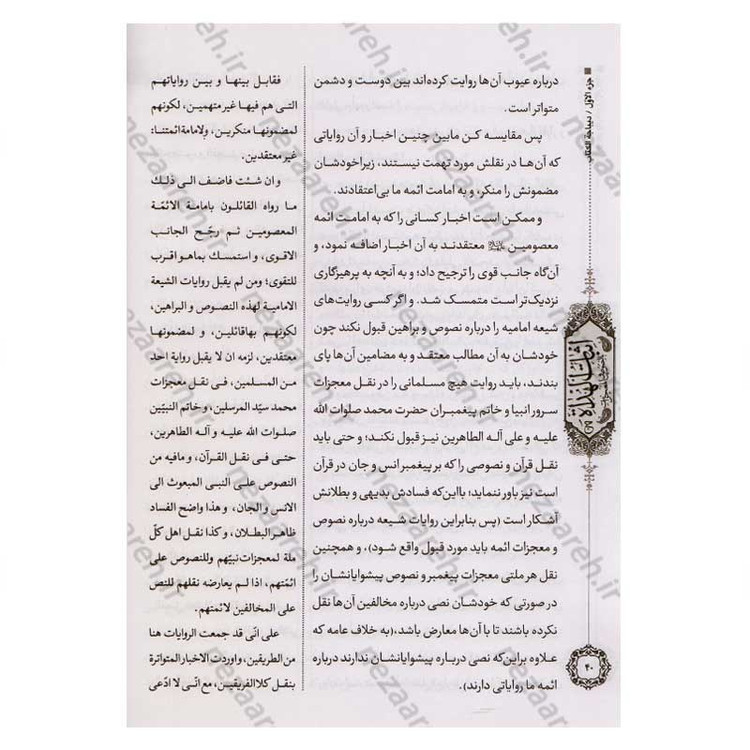 جزء الاوّل / دیباجة الکتاب
درباره عیوب آن‌ها روایت کرده‌اند بین دوست و دشمن
متواتر است.
پس مقایسه کن مابین چنین اخبار و آن روایاتی
که آن‌ها در نقلش مورد تهمت نیستند، زیرا خودشان
مضمونش را منکر، و به امامت ائمه ما بی‌اعتقادند.
و ممکن است اخبار کسانی را که به امامت ائمه
معصومین معتقدند به آن اخبار اضافه نمود، و
آن‌گاه جانب قوی را ترجیح داد؛ و به آنچه به پرهیزگاری
نزدیک‌تر است متمسک شد. و اگر کسی روایت‌های
شیعه امامیه را درباره نصوص و براهین قبول نکند چون
خودشان به آن مطالب معتقد و به مضامین آن‌ها پای
بندند، باید روایت هیچ مسلمانی را در نقل معجزات
سرور انبیا و خاتم پیغمبران حضرت محمد صلوات الله
علیه و علی آله الطاهرین نیز قبول نکند؛ و حتی باید
نقل قرآن و نصوصی را که بر پیغمبر انس و جان در قرآن
است نیز باور ننماید؛ بااین‌که فسادش بدیهی و بطلانش
آشکار است (پس بنابراین روایات شیعه درباره نصوص
و معجزات ائمه باید مورد قبول واقع شود)، و همچنین
نقل هر ملتی معجزات پیغمبر و نصوص پیشوایانشان را
در صورتی که خودشان نصی درباره مخالفین آن‌ها نقل
نکرده باشند تا با آن‌ها معارض باشد، (به خلاف عامه که
علاوه براین‌که نصی درباره پیشوایانشان ندارند درباره
ائمه ما روایاتی دارند).
فقابل بینها و بین روایاتهم
التی هم فیها غیر متهمین، لکونهم
لمضمونها منکرین، ولامامة ائمتنا:
غیر معتقدین.
و ان شئت فاضف الی ذلک
ما رواه القائلون بامامة الائمّة
المعصومین ثم رجّح الجانب
الاقوی، و استمسک بما هو اقرب
للتقوی؛ ومن لم یقبل روایات الشیعة
الامامیة لهذه النصوص و البراهین،
لکونهم بهاقائلین، و لمضمونها
معتقدین، لزمه ان لا یقبل روایة احد
من المسلمین، فی نقل معجزات
محمد سیّد المرسلین، و خاتم النبیّین
صلوات الله علیه و آله الطاهرین،
حتی فی نقل القرآن، و مافیه من
النصوص علی النبی المبعوث الی
الانس و الجان، و هذا واضح الفساد
ظاهر البطلان، و کذا نقل اهل کلّ
ملة لمعجزات نبیّهم وللنصوص علی
ائمّتهم، اذا لم یعارضه نقلهم للنص
علی المخالفین لائمتهم.
علی انّی قد جمعت الروایات هنا
من الطریقین، و اوردت الاخبار المتواترة
بنقل کلا الفریقین، مع انّی لا ادّعی
اثبات الهداة
۴۰
nezaareh.ir